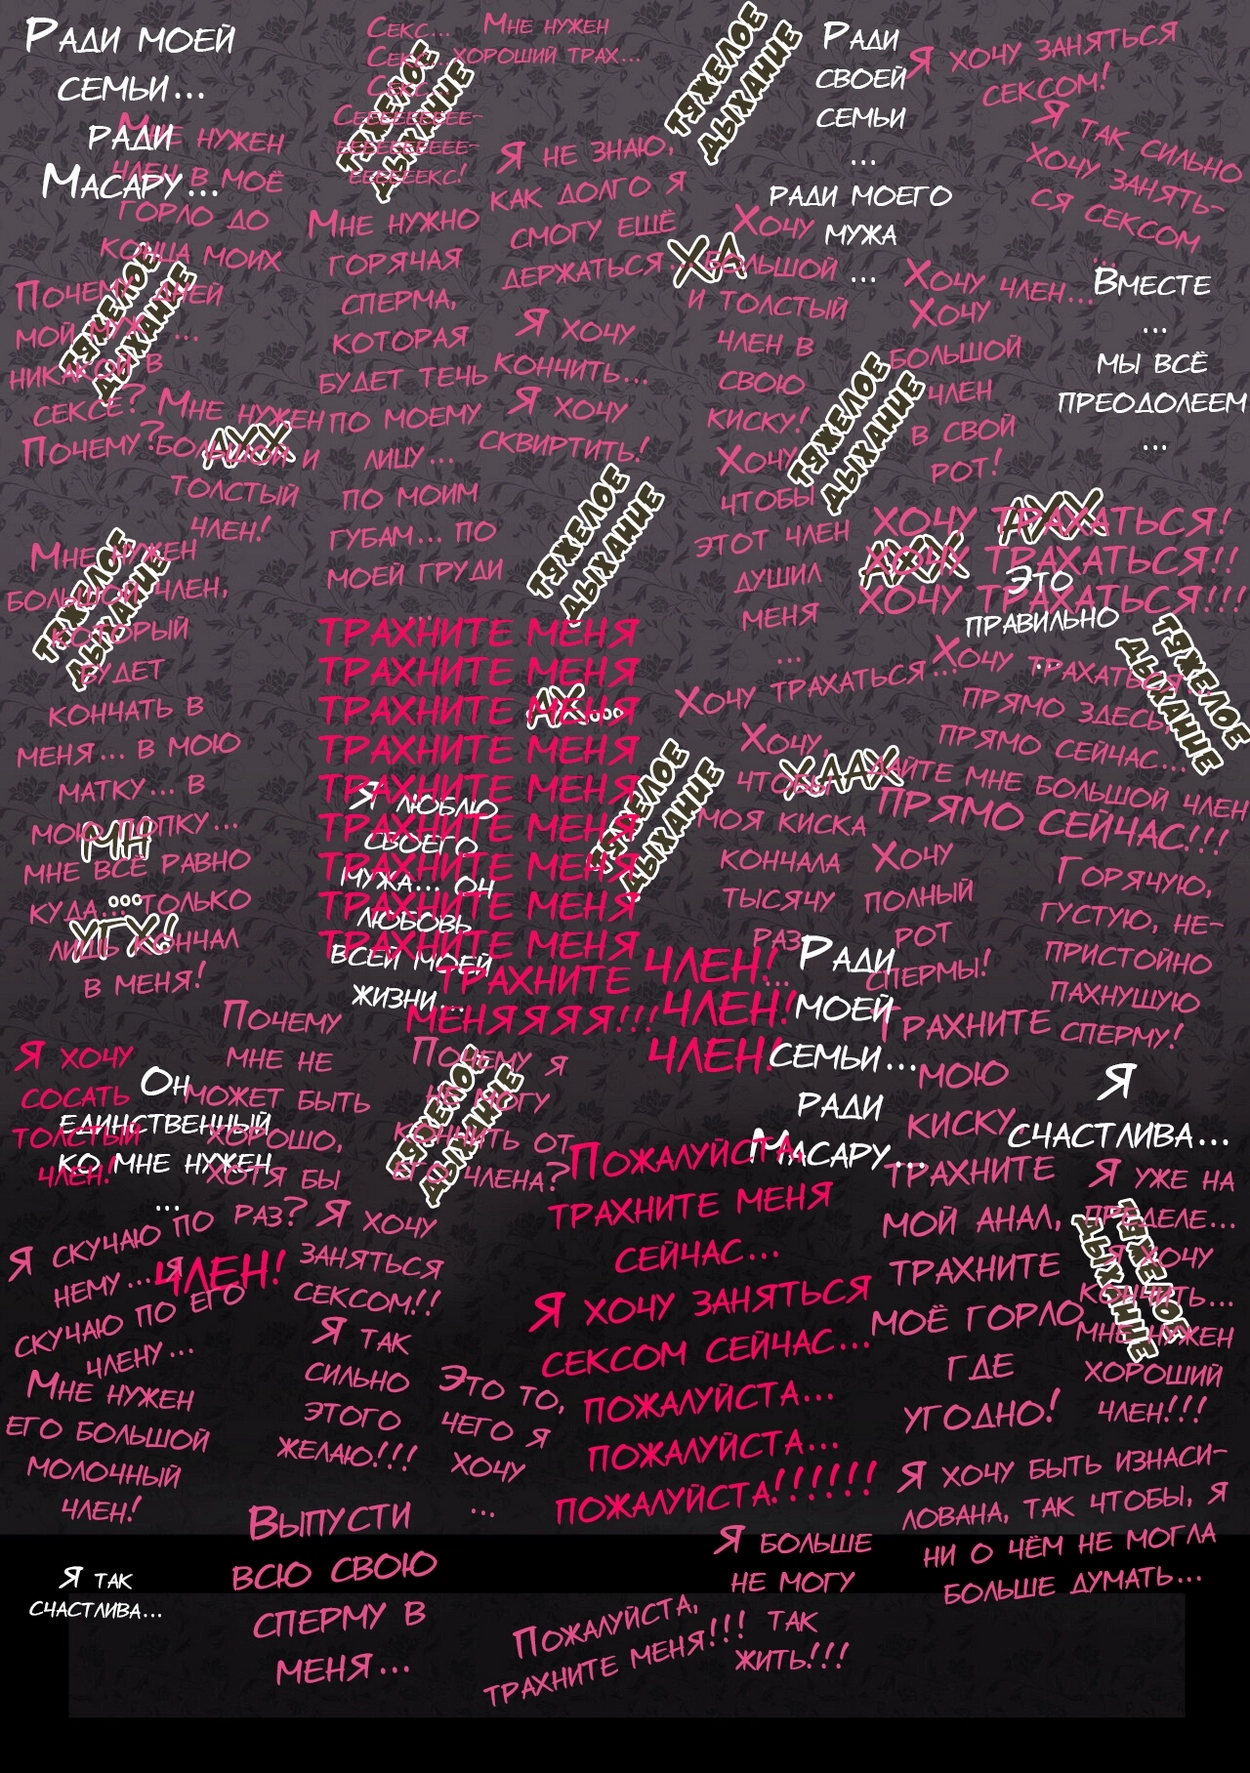 Ради моей
семьи...
ради
Масару...
Мне нужен
член в моё
горло до
конца моих
дней
Секс...
Секс...
Секс...
Сееееееееее-
ееееееееее-
еееееекс!
Мне нужен
хороший трах...
тяжелое
дыхание
тяжелое
дыхание
Ради
своей
семьи
...
ради моего
мужа
...
Я хочу заняться
сексом!
Я так сильно
хочу занять-
ся сексом
...
Я не знаю,
как долго я
смогу ещё
держаться...
Ха
Мне нужно
горячая
сперма,
которая
будет течь
по моему
лицу...
по моим
губам... по
моей груди
...
Я хочу
кончить...
Я хочу
сквиртить!
Хочу
большой
и толстый
член в
свою
киску!
Хочу,
чтобы
этот член
душил
меня
...
Хочу член...
Хочу
большой
член
в свой
рот!
Вместе
...
мы всё
преодолеем
...
тяжелое
дыхание
Почему
мой муж...
никакой в
сексе?
Почему?
Мне нужен
большой и
толстый
член!
Ахх
тяжелое
дыхание
тяжелое
дыхание
Ахх
Ахх
хочу трахаться!
хочу трахаться!!
хочу трахаться!!!
Это
правильно
...
тяжелое
дыхание
Мне нужен
большой член,
который
будет
кончать в
меня... в мою
матку... в
мою попку...
мне всё равно
куда... только
лишь кончал
в меня!
тяжелое
дыхание
Мн
...
угх!
трахните меня
трахните меня
трахните меня
трахните меня
трахните меня
трахните меня
трахните меня
трахните меня
трахните меня
трахните
меняяяя!!!
Ах...
Я люблю
своего
мужа... Он
любовь
всей моей
жизни...
тяжелое
дыхание
Хочу трахаться...
Хочу,
чтобы
моя киска
кончала
тысячу
раз
...
Хаах
Хочу трахаться
прямо здесь,
прямо сейчас...
дайте мне большой член
прямо сейчас!!!
Хочу
полный
рот
спермы!
Горячую,
густую, не-
пристойно
пахнущую
сперму!
член!
член!
член!
Ради
моей
семьи...
ради
Масару...
Трахните
мою
киску,
трахните
мой анал,
трахните
моё горло
где
угодно!
Я
счастлива...
Я хочу
сосать
толстый
член!
Он
единственный
ко мне нужен
...
Почему
мне не
может быть
хорошо,
хотя бы
раз?
Почему я
не могу
кончить от
его члена?
тяжелое
дыхание
Пожалуйста,
трахните меня
сейчас...
Я хочу заняться
сексом сейчас...
пожалуйста...
пожалуйста...
пожалуйста!!!!!!
Я уже на
пределе...
я хочу
кончить...
мне нужен
хороший
член!!!
тяжелое
дыхание
Я скучаю по
нему... я
скучаю по его
члену...
член!
Я хочу
заняться
сексом!!
Я так
сильно
этого
желаю!!!
Мне нужен
его большой
молочный
член!
Это то,
чего я
хочу
...
Я хочу быть изнаси-
лована, так чтобы, я
ни о чём не могла
больше думать...
Выпусти
всю свою
сперму в
меня...
Я больше
не могу
так
жить!!!
Я так
счастлива...
Пожалуйста,
трахните меня!!!